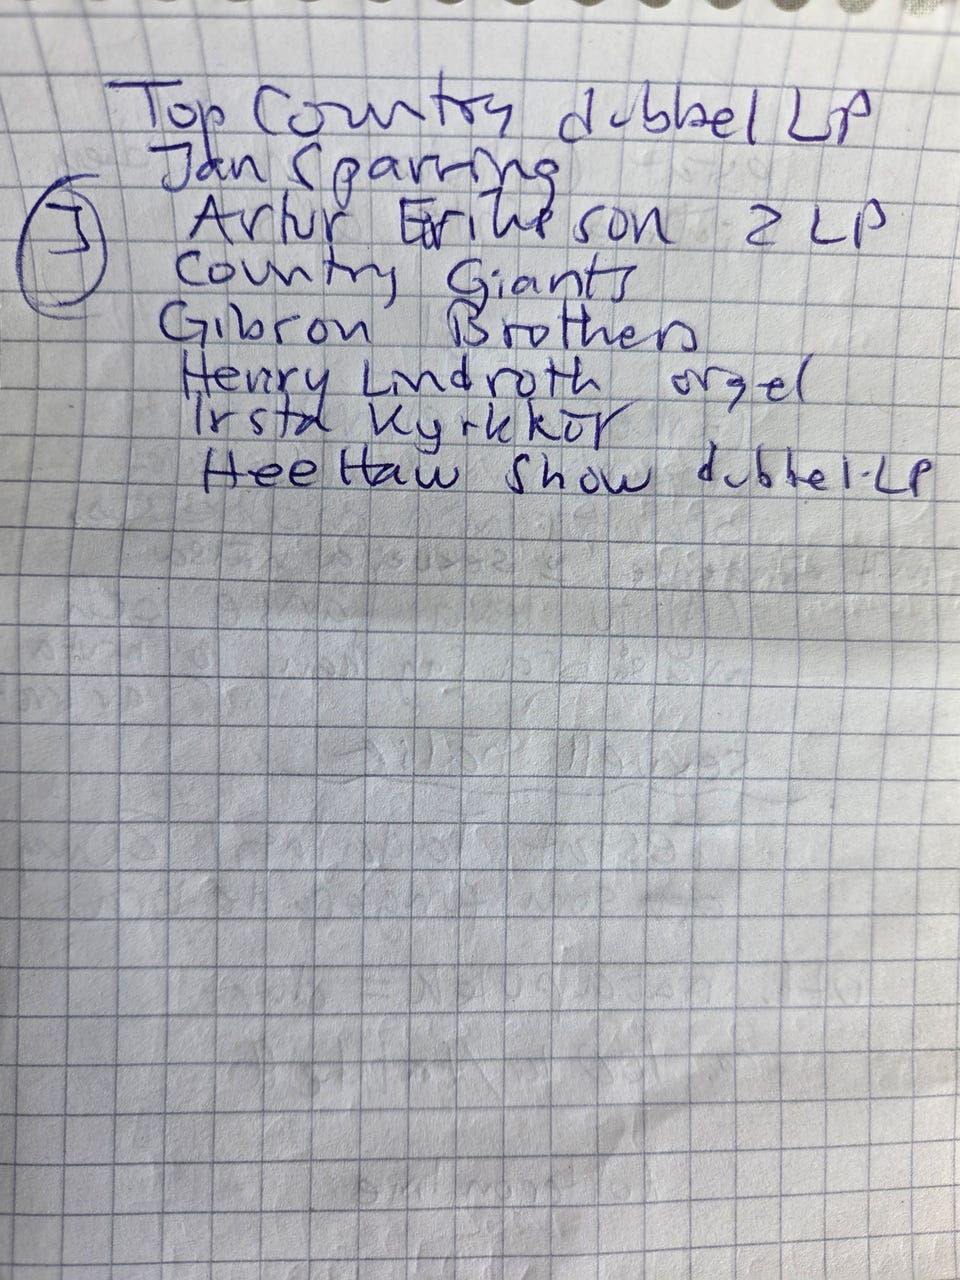 Top Country dubbel LP
Jan Sparring
J Artur Erikson 2 LP
Country Giants
Gibson Brothers
Henry Lindroth orgel
Irsta Kyrkkör
Hee Haw Show dubbel-LP